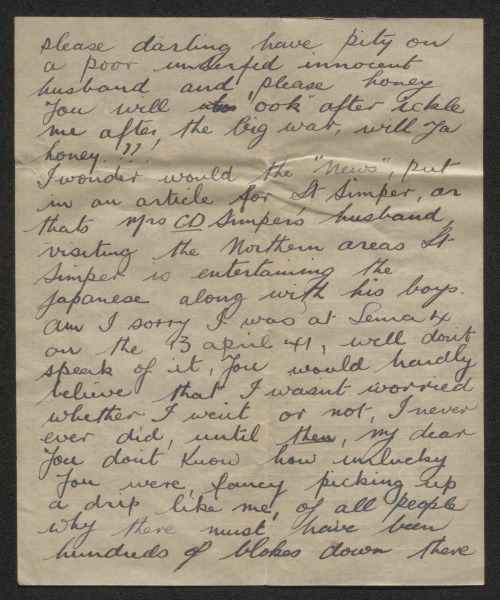 please darling have pity on
a poor underfed innocent
husband and please honey
You will 'ook' after 'ickle
me after, the big war, will Ya
honey.???!
I wonder would the "News", put
in an article for Lt Simper, or
thats Mrs CD Simper's husband,
visiting the Northern areas Lt
Simper is entertaining the
Japanese along with his boys.
Am I sorry I was at
on the 3 april 41, well dont
speak of it, You would hardly
believe that I wasnt worried
whether I went or not, I never
ever did, until then, my dear
You dont know how unlucky
You were, fancy picking up
a drip like me, of all people
why there must have been
hundreds of blokes down there